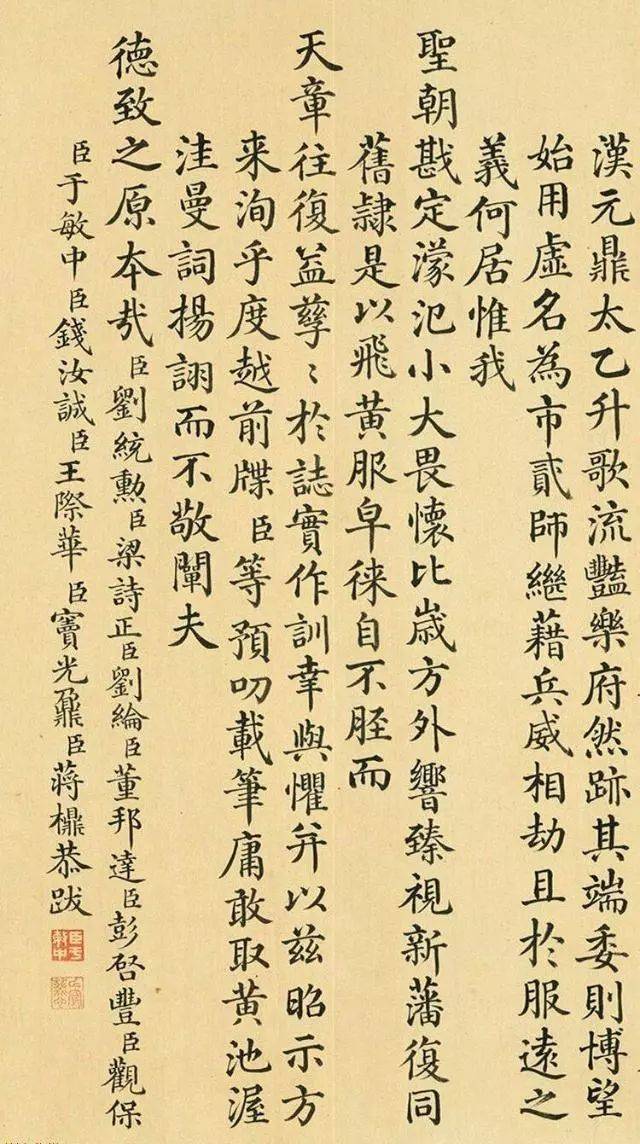 漢元鼎太乙升歌流豔樂府然跡其端委則博望
始用虛名為市貳師繼藉兵威相劫且於服遠之
義何居惟我
聖朝戡定濛汜小大畏懷比歲方外響臻視新藩復同
舊隷是以飛黃服皁徠自不脛而
天章往復益孳〻於誌實作訓幸與懼并以茲昭示方
来洵乎度越前牒臣等預叨載筆庸敢取黃池渥
洼曼詞揚詡而不敬闡夫
德致之原本㢤臣劉統勳臣梁詩正臣劉綸臣董邦達臣彭啓豐臣觀保
臣于敏中臣錢汝誠臣王際華臣竇光鼐臣蔣檙恭跋